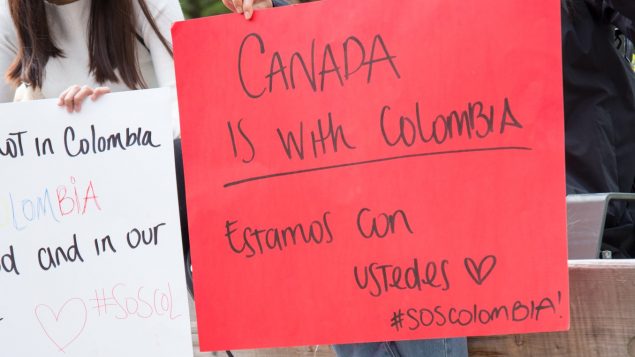 not in Colombia
COLOMBIA
and in our
#SOSCOL
CANADA
IS with COLOMBIA
Estamos con
ustedes ♡
#SOSCOLOMBIA!